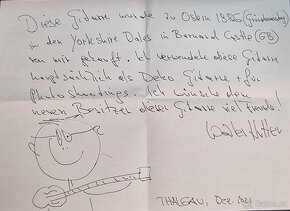 Diese Gitarre wurde zu Ostern 1986 (Gründonnerstag)
in den Yorkshire Dales in Barnard Castle (GB)
von mir gekauft. Ich verwendete diese Gitarre
hauptsächlich als Deko Gitarre + für
Photoshootings. Ich wünsche dem
neuen Besitzer dieser Gitarre viel Freude!
THALGAU, Dez. 2021